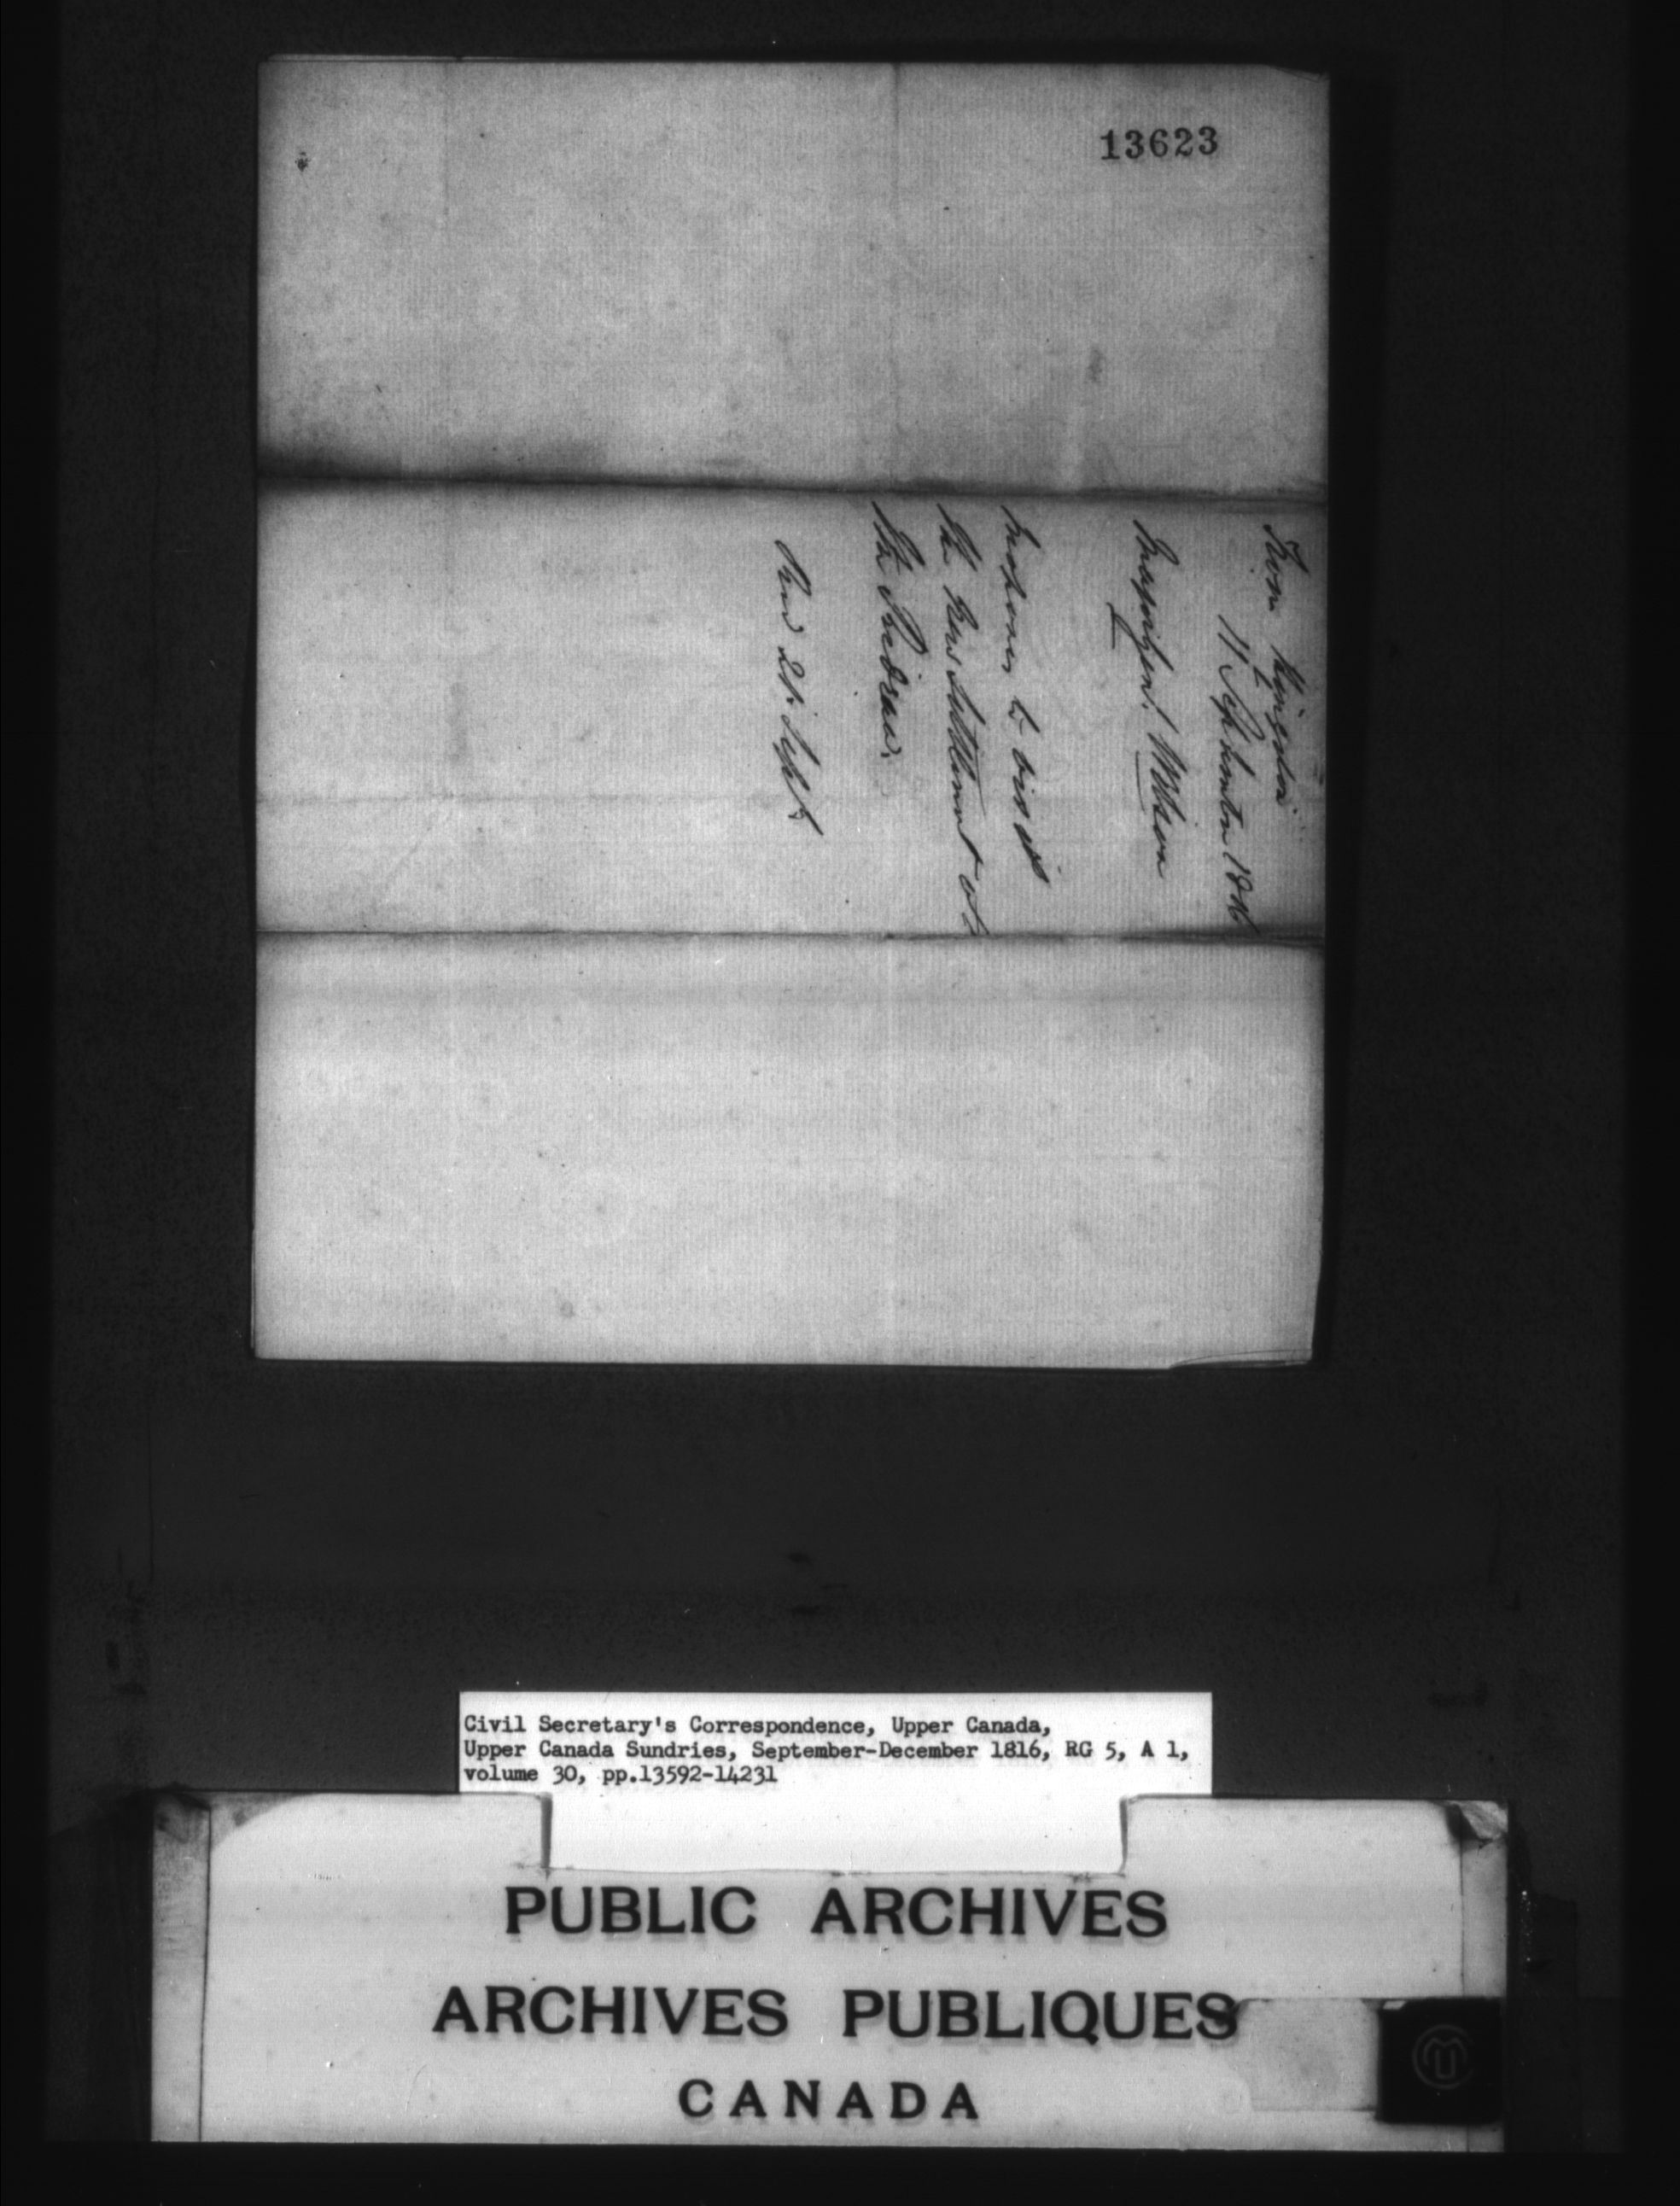 13623
From Kingston
11th September 1816
Major Genl. Wilson
proposes to visit
the New Settlement at
the Rideau.
Recd 21st Septr
Civil Secretary's Correspondence, Upper Canada,
Upper Canada Sundries, September-December 1816, RG 5, A 1,
volume 30, pp.13592-14231
PUBLIC ARCHIVES
ARCHIVES PUBLIQUES
CANADA